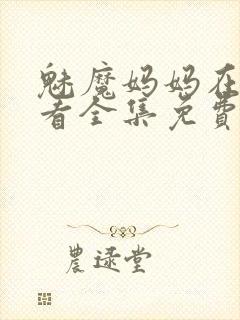 魅魔妈妈在
看全集免費
農逯堂